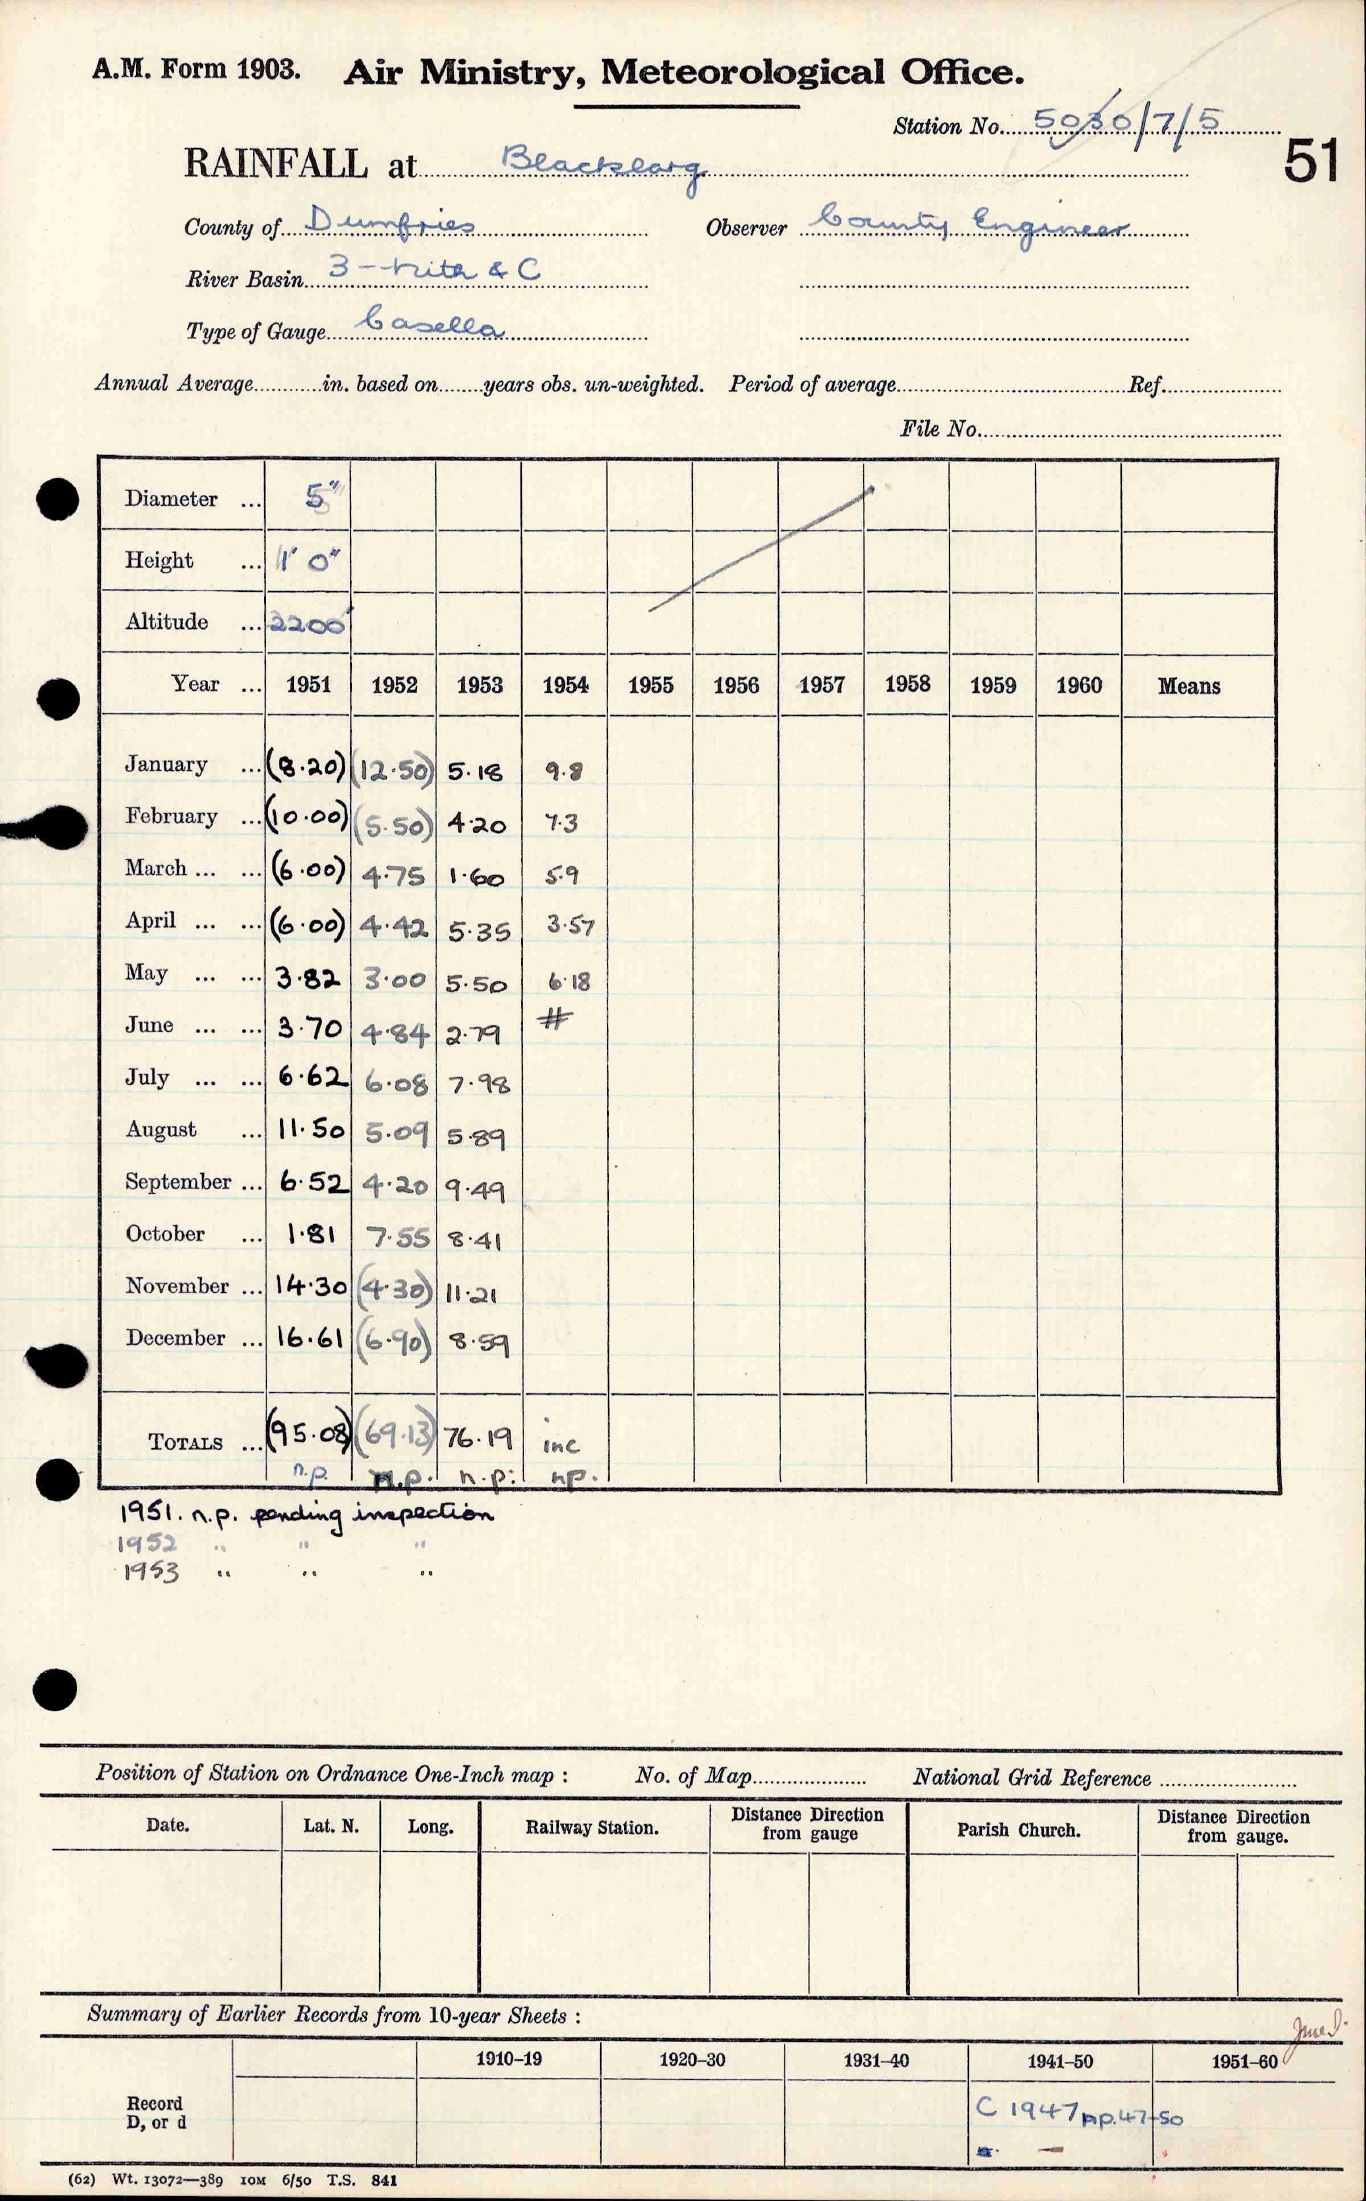 A.M. Form 1903. Air Ministry, Meteorological Office.
Station No. 5030/7/5
51
RAINFALL at Blacklarg
County of Dumfries Observer County Engineer
River Basin 3 - Nith & C
Type of Gauge Casella
Annual Average in. based on years obs. un-weighted. Period of average Ref.
File No.
Diameter ... 5"
Height ... 1' 0"
Altitude ... 2200'
Year ... 1951 1952 1953 1954 1955 1956 1957 1958 1959 1960 Means
January ... (8.20) (12.50) 5.18 9.8
February ... (10.00) (5.50) 4.20 7.3
March ... ... (6.00) 4.75 1.60 5.9
April ... ... (6.00) 4.42 5.35 3.57
May ... ... 3.82 3.00 5.50 6.18
June ... ... 3.70 4.84 2.79 #
July ... ... 6.62 6.08 7.98
August ... 11.50 5.09 5.89
September ... 6.52 4.20 9.49
October ... 1.81 7.55 8.41
November ... 14.30 (4.30) 11.21
December ... 16.61 (6.90) 8.59
TOTALS ... (95.08) (69.13) 76.19 inc
n.p. n.p. n.p. np.
1951. n.p. pending inspection
1952 " " "
1953 " " "
Position of Station on Ordnance One-Inch map : No. of Map National Grid Reference
Date. Lat. N. Long. Railway Station. Distance Direction from gauge Parish Church. Distance Direction from gauge.
Summary of Earlier Records from 10-year Sheets :
1910–19 1920–30 1931–40 1941–50 1951–60
Record
D, or d
C 1947 pp. 47-50
(62) Wt. 13072—389 10M 6/50 T.S. 841